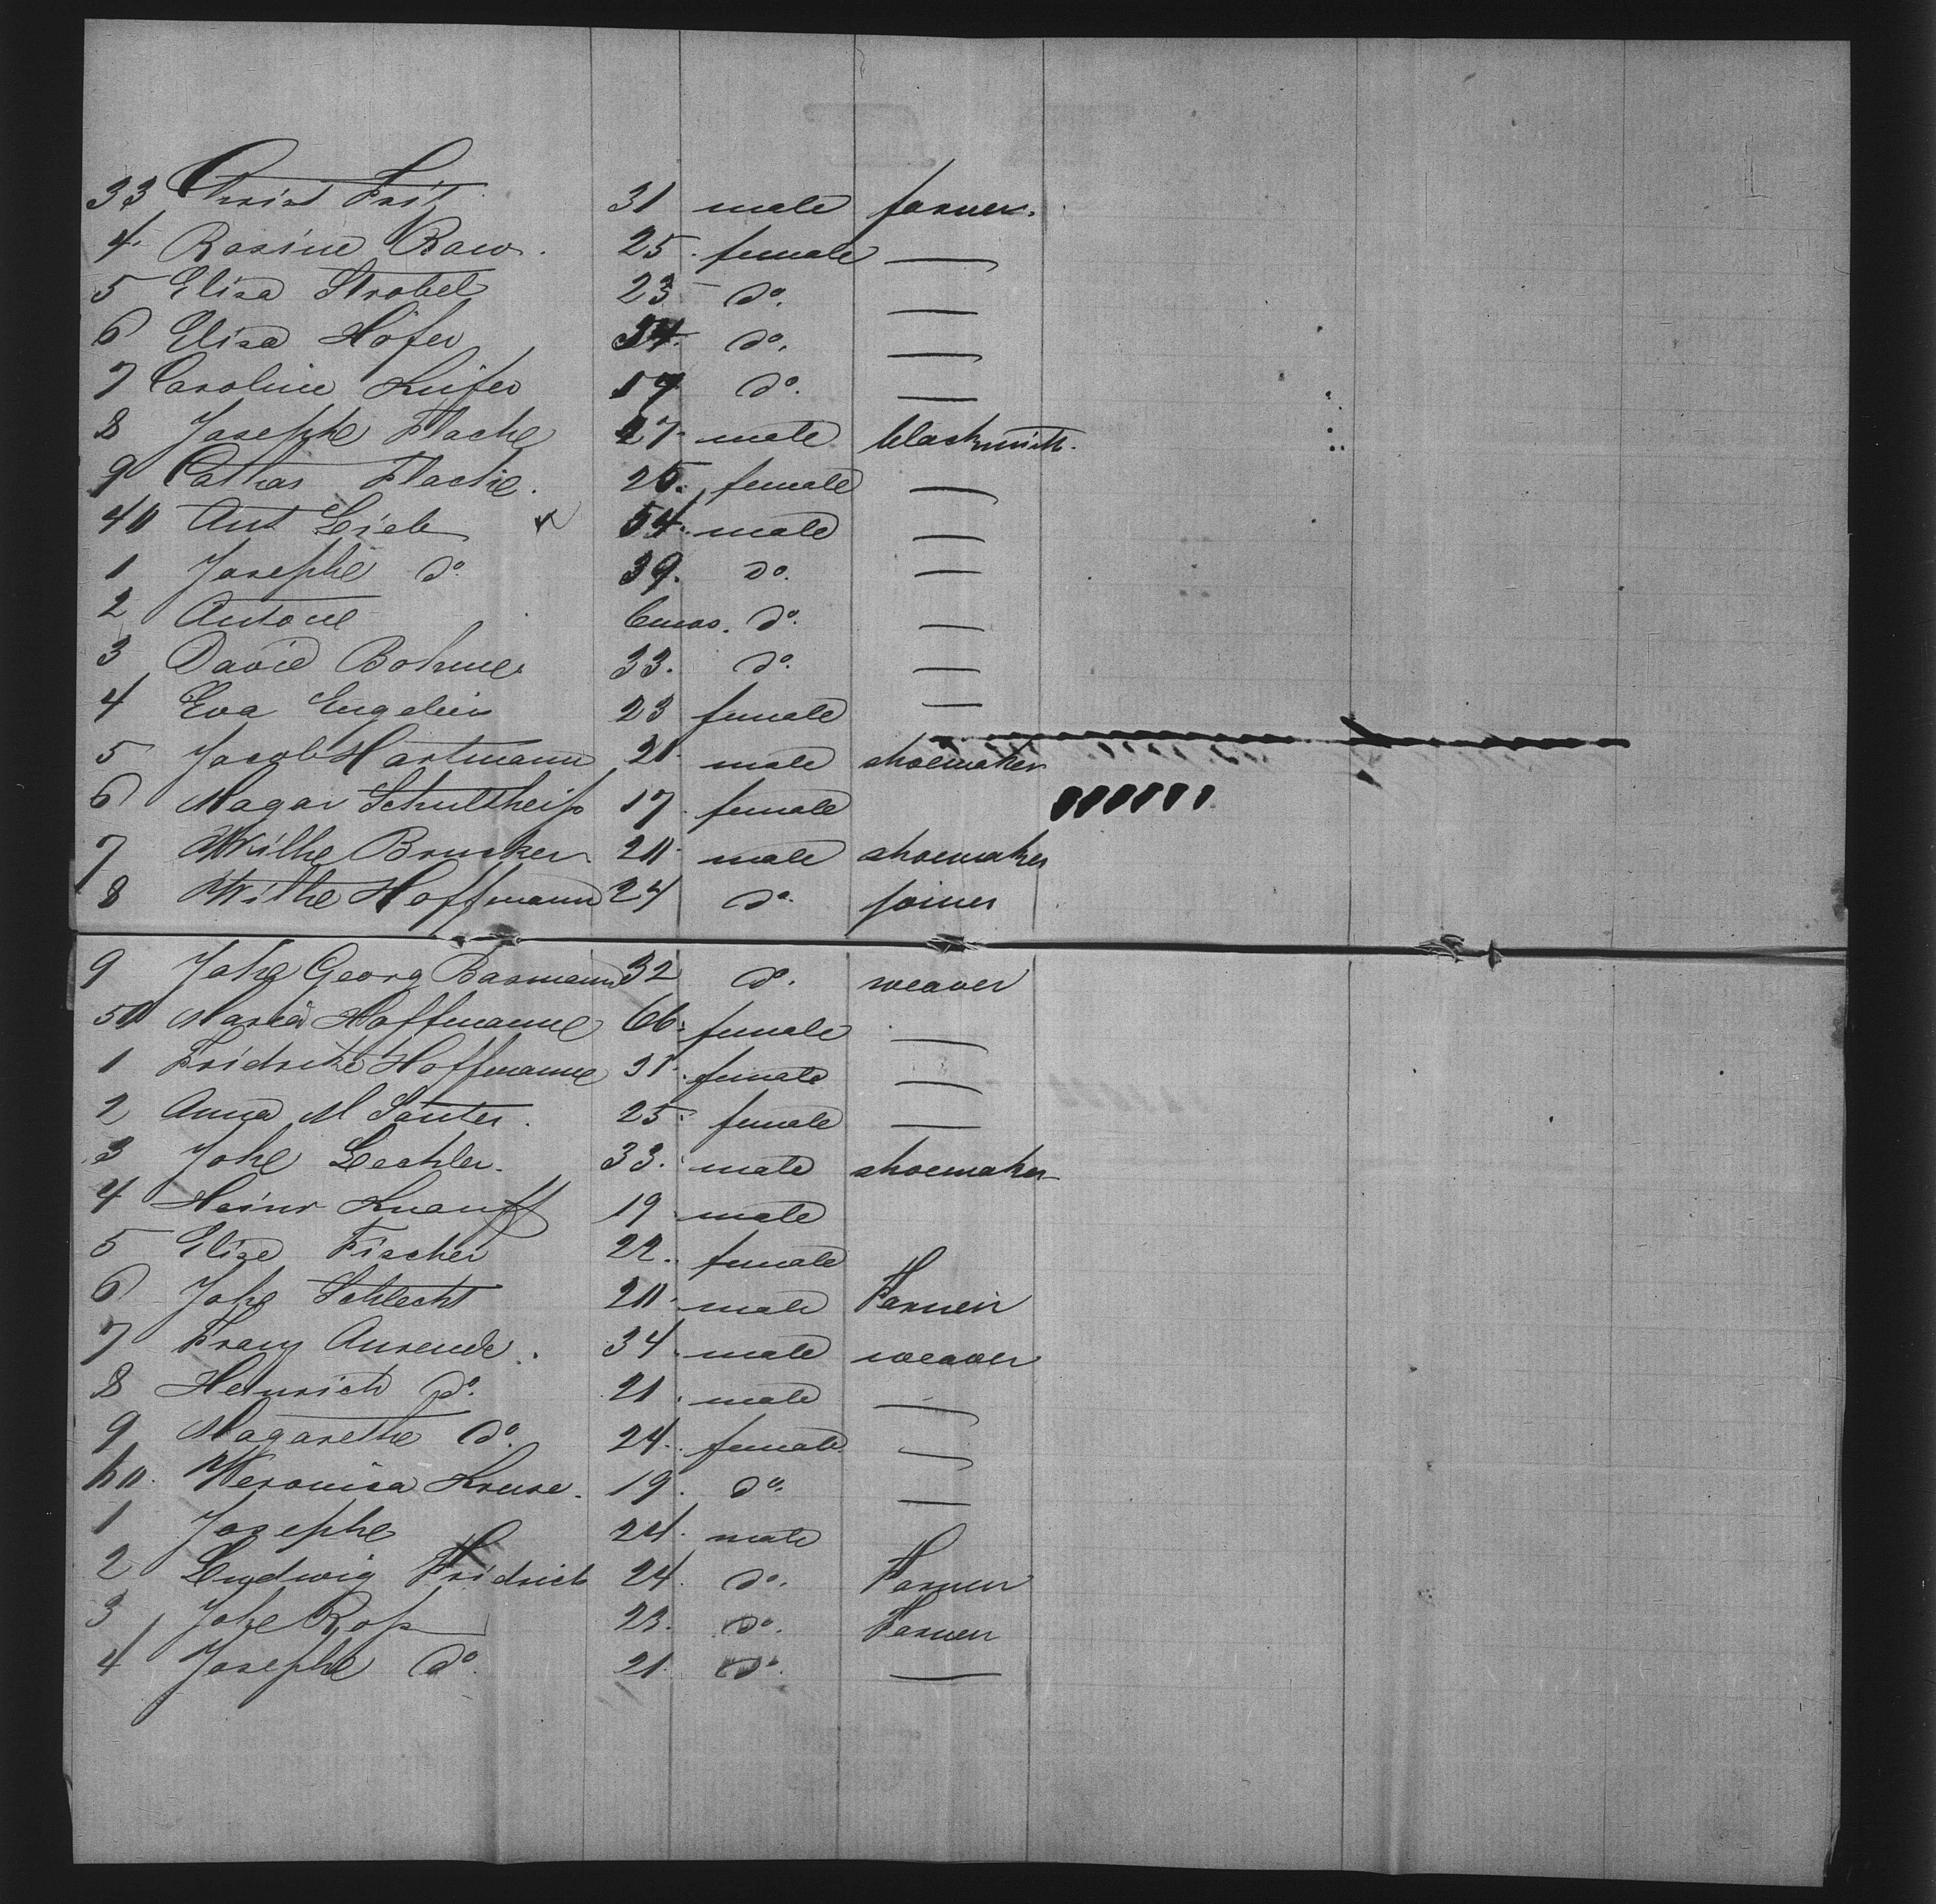 33 Christ Fritz 31 male farmer.
4. Rosine Rau. 25. female —
5 Elisa Strobel 23 - do. —
6 Elisa Höfer do. —
7 Caroline 17 do. —
8 Josephe Flache 27. male blacksmith.
9 Cathar Flache. 26. female —
40 Ant Lieb 54. male —
1 Josephe do. 39. do. —
2 Antone 6 mos. do. —
3 David Bohmer 33. do. —
4 Eva Engelin 23 female —
5 Jacob Hartmann 21. male shoemaker
6 Magar Schultheiß 17. female
7 Wilhe Brucker 20. male shoemaker
8 Wilhe Hoffmann 24 do. joiner
9 Johe Georg Basmann 32 do. weaver
50 Maria Hoffmanne 66. female —
1 Fridrike Hoffmanne 31. female —
2 Anna M Sauter. 25. female —
3 Johe Lechler. 33. male shoemaker
4 Heinr Knauff 19 male
5 Elise Fischer 22. female
6 Johe Schlecht 20. male Farmer
7 Franz 34. male weaver
8 Heinrich do. 21. male —
9 Magarethe do. 24. female —
60. Weronica Kruse. 19. do. —
1 Josephe 24. male
2 Ludwig Fridrich 24. do. Farmer
3 Johe Roß 23. do. Farmer
4 Josephe do. 21. do. —